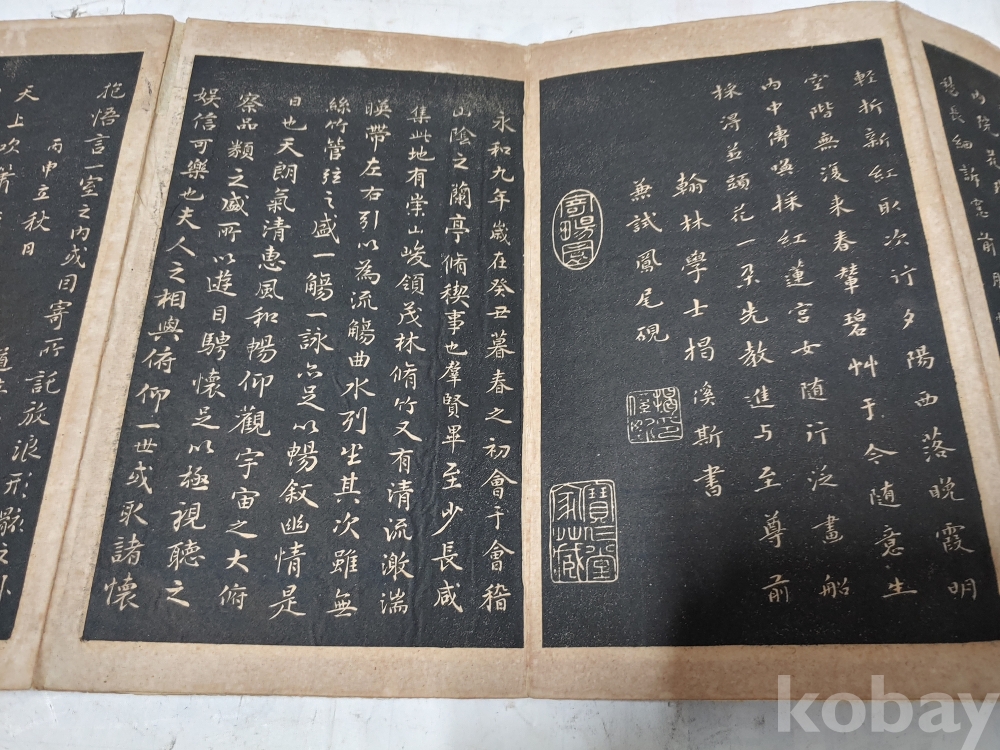 輕折新紅臥次行夕陽西落晚霞明
空階無復來春輦碧艸于今隨意生
內中傳喚採紅蓮宮女隨行泛畫船
採得並頭花一朵先教進与至尊前
翰林學士揭傒斯書
兼試鳳尾硯
永和九年歲在癸丑暮春之初會于會稽
山陰之蘭亭脩稧事也羣賢畢至少長咸
集此地有崇山峻領茂林脩竹又有清流激湍
暎帶左右引以為流觴曲水列坐其次雖無
絲竹管弦之盛一觴一詠亦足以暢敘幽情是
日也天朗氣清惠風和暢仰觀宇宙之大俯
察品類之盛所以遊目騁懷足以極視聽之
娛信可樂也夫人之相與俯仰一世或取諸懷
抱悟言一室之內或因寄所託放浪形骸之外
丙申立秋日
天上吹
kobay